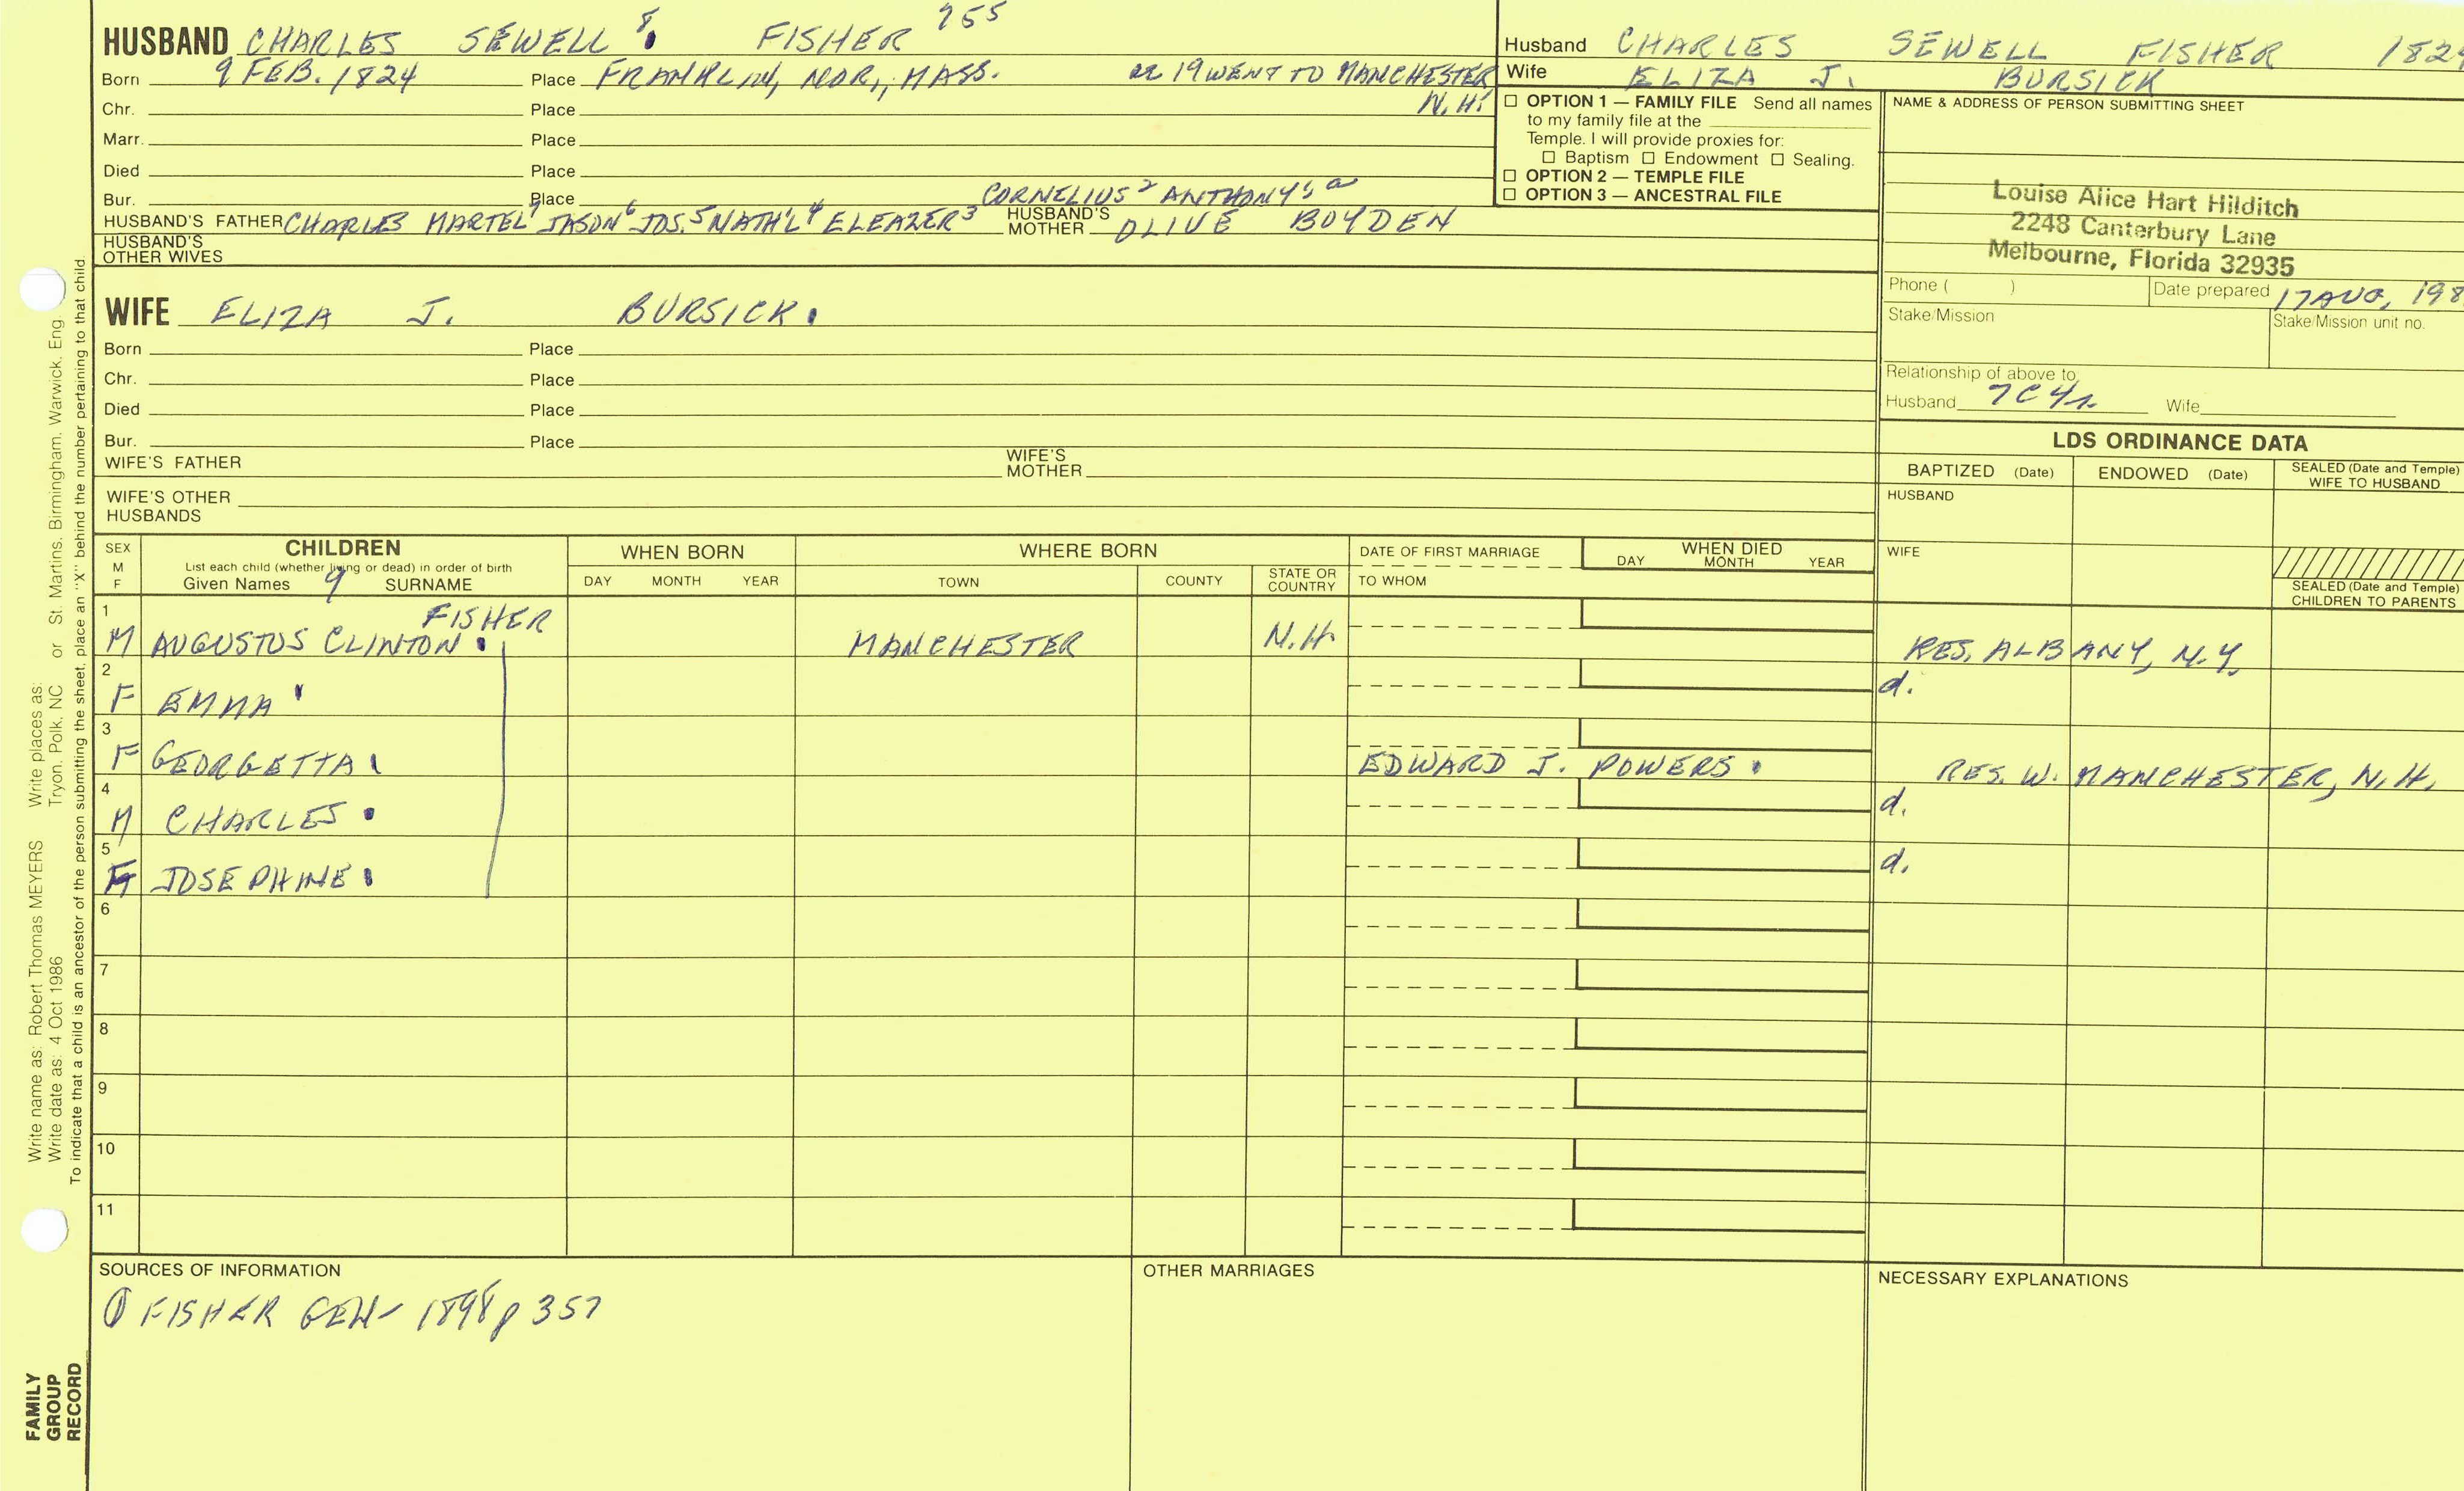 HUSBAND CHARLES SEWELL 8 FISHER 755
Born 9 FEB. 1824 Place FRANKLIN, NOR., MASS. AE 19 WENT TO MANCHESTER
N.H.
Chr. Place
Marr. Place
Died Place
Bur. Place
CORNELIUS 2 ANTHONY 1, a
HUSBAND'S FATHER CHARLES MARTEL 7 JASON 6 JOS. 5 NATH'L 4 ELEAZER 3 HUSBAND'S MOTHER OLIVE BOYDEN
HUSBAND'S OTHER WIVES
WIFE ELIZA J. BURSICK
Born Place
Chr. Place
Died Place
Bur. Place
WIFE'S FATHER WIFE'S MOTHER
WIFE'S OTHER HUSBANDS
Husband CHARLES SEWELL FISHER 1824
Wife ELIZA J. BURSICK
☐ OPTION 1 — FAMILY FILE Send all names
to my family file at the
Temple. I will provide proxies for:
☐ Baptism ☐ Endowment ☐ Sealing.
☐ OPTION 2 — TEMPLE FILE
☐ OPTION 3 — ANCESTRAL FILE
NAME & ADDRESS OF PERSON SUBMITTING SHEET
Louise Alice Hart Hilditch
2248 Canterbury Lane
Melbourne, Florida 32935
Phone ( ) Date prepared 17 AUG, 198
Stake/Mission Stake/Mission unit no.
Relationship of above to
Husband 7C4r Wife
LDS ORDINANCE DATA
BAPTIZED (Date) ENDOWED (Date) SEALED (Date and Temple) WIFE TO HUSBAND
HUSBAND
WIFE
SEALED (Date and Temple) CHILDREN TO PARENTS
SEX M F CHILDREN WHEN BORN WHERE BORN DATE OF FIRST MARRIAGE WHEN DIED
List each child (whether living or dead) in order of birth
Given Names 9 SURNAME DAY MONTH YEAR TOWN COUNTY STATE OR COUNTRY TO WHOM DAY MONTH YEAR
1 FISHER
M AUGUSTUS CLINTON MANCHESTER N.H. RES. ALBANY, N.Y.
2 d.
F EMMA
3
F GEORGETTA EDWARD J. POWERS RES. W. MANCHESTER, N.H.
4 d.
M CHARLES
5 d.
F JOSEPHINE
6
7
8
9
10
11
SOURCES OF INFORMATION OTHER MARRIAGES NECESSARY EXPLANATIONS
① FISHER GEN- 1898 p 357
Write name as: Robert Thomas MEYERS Write places as:
Write date as: 4 Oct 1986 Tryon, Polk, NC or St. Martins, Birmingham, Warwick, Eng.
To indicate that a child is an ancestor of the person submitting the sheet, place an "X" behind the number pertaining to that child
FAMILY
GROUP
RECORD